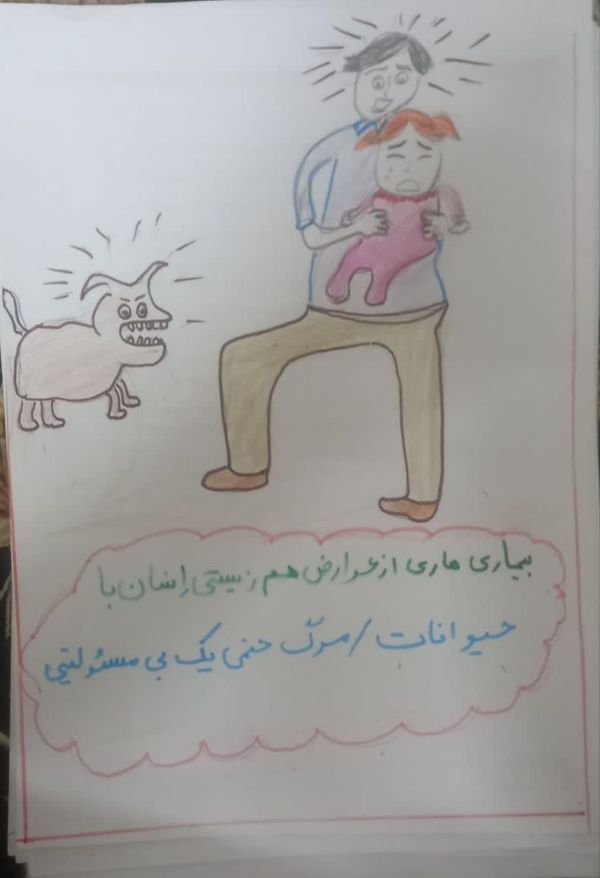 بیماری هاری از عوارض هم زیستی اِنسان با
حیوانات / مرگ حتمی یک بی مسئولیتی